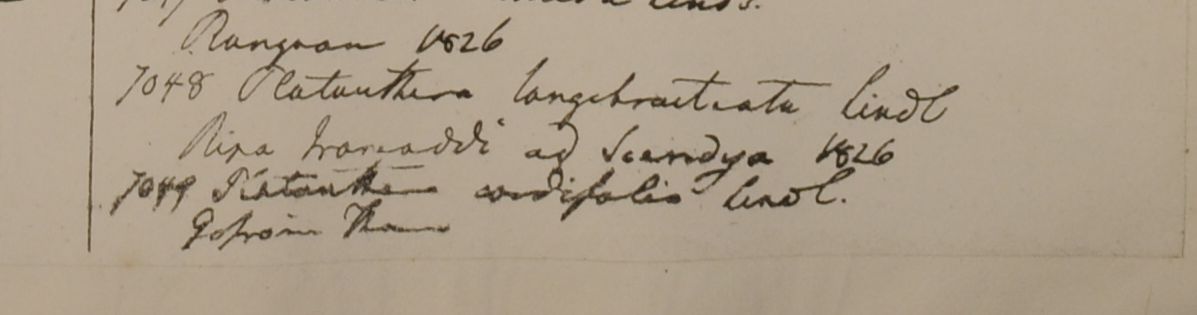 Lindl.
Rangoon 1826
7048 Platanthera longebracteata Lindl
Ripa Irawaddi ad Seandya 1826
7049 Platanthera cordifolia Lindl.